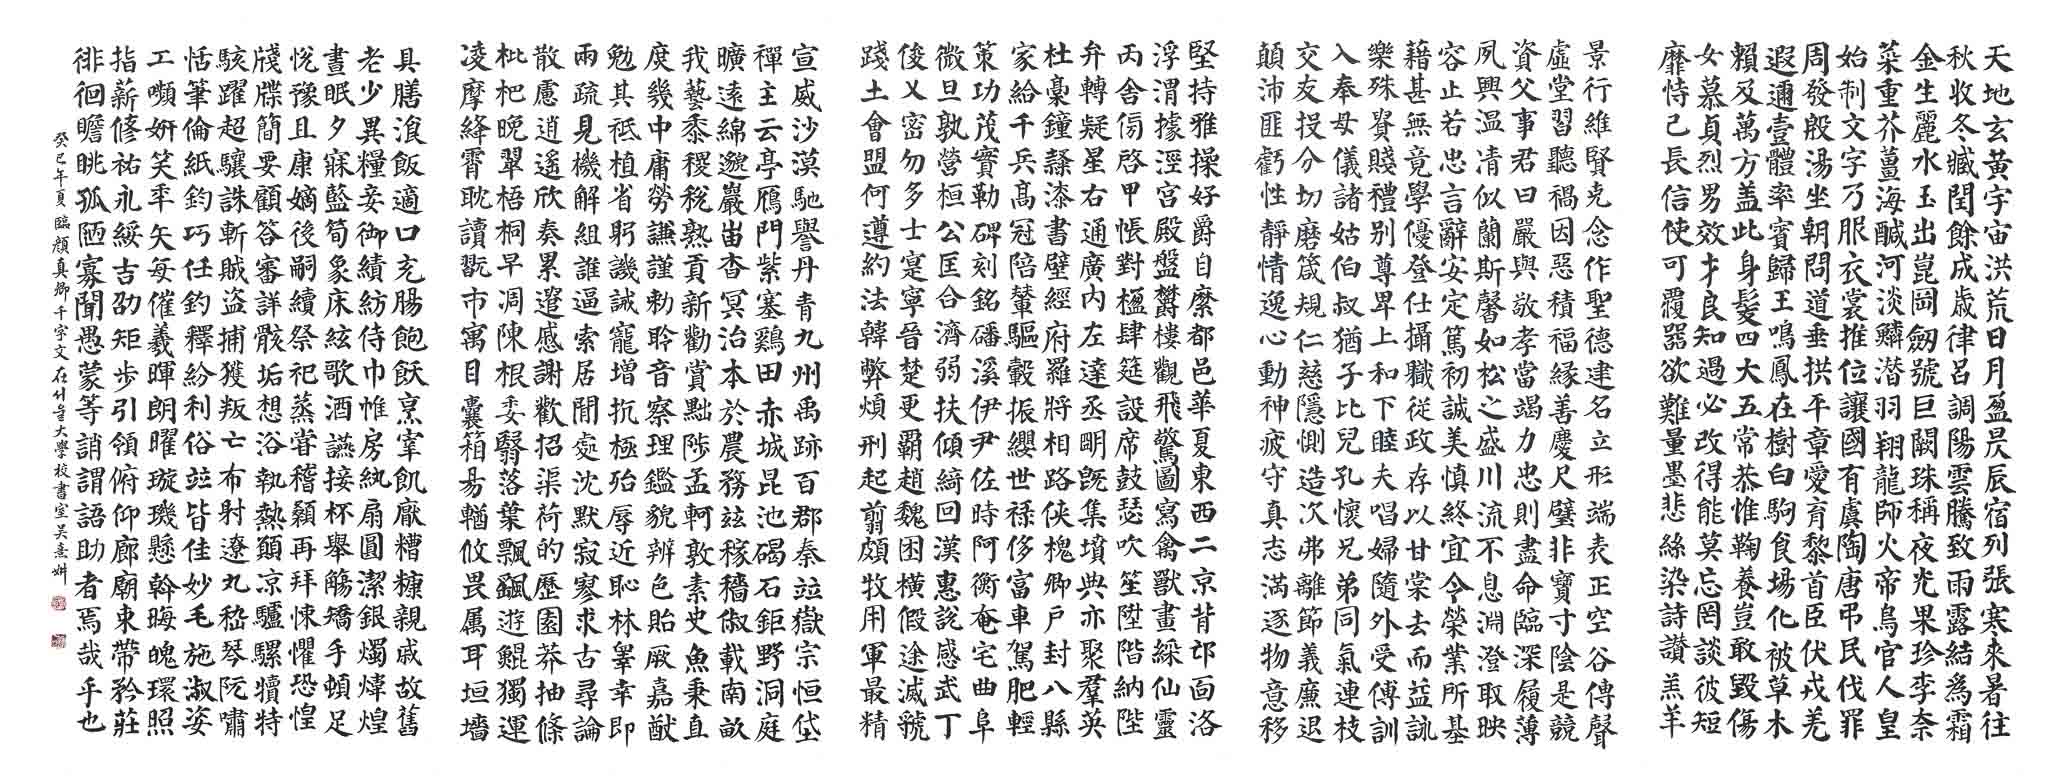 天地玄黄宇宙洪荒日月盈昃辰宿列張寒來暑往
秋收冬藏閏餘成歲律呂調陽雲騰致雨露結爲霜
金生麗水玉出崑岡劒號巨闕珠稱夜光果珍李奈
菜重芥薑海鹹河淡鱗潜羽翔龍師火帝鳥官人皇
始制文字乃服衣裳推位讓國有虞陶唐弔民伐罪
周發殷湯坐朝問道垂拱平章愛育黎首臣伏戎羌
遐邇壹體率賓歸王鳴鳳在樹白駒食場化被草木
賴及萬方盖此身髮四大五常恭惟鞠養豈敢毀傷
女慕貞烈男效才良知過必改得能莫忘罔談彼短
靡恃己長信使可覆器欲難量墨悲絲染詩讚羔羊
景行維賢克念作聖德建名立形端表正空谷傳聲
虛堂習聽禍因惡積福縁善慶尺璧非寶寸陰是競
資父事君曰嚴與敬孝當竭力忠則盡命臨深履薄
夙興温凊似蘭斯馨如松之盛川流不息淵澄取映
容止若思言辭安定篤初誠美慎終宜令榮業所基
藉甚無竟學優登仕攝職從政存以甘棠去而益詠
樂殊貴賤禮別尊卑上和下睦夫唱婦隨外受傅訓
入奉母儀諸姑伯叔猶子比兒孔懷兄弟同氣連枝
交友投分切磨箴規仁慈隱惻造次弗離節義廉退
顛沛匪虧性靜情逸心動神疲守真志滿逐物意移
堅持雅操好爵自縻都邑華夏東西二京背邙面洛
浮渭據涇宮殿盤欝樓觀飛驚圖寫禽獸畫綵仙靈
丙舍傍啓甲帳對楹肆筵設席鼓瑟吹笙陞階納陛
弁轉疑星右通廣内左達丞明既集墳典亦聚羣英
杜稾鐘隷漆書壁經府羅將相路俠槐卿户封八縣
家給千兵高冠陪輦驅轂振纓世禄侈富車駕肥輕
策功茂實勒碑刻銘磻溪伊尹佐時阿衡奄宅曲阜
微旦孰營桓公匡合濟弱扶傾綺回漢惠說感武丁
俊乂密勿多士寔寧晉楚更霸趙魏困橫假途滅虢
踐土會盟何遵約法韓弊煩刑起翦頗牧用軍最精
宣威沙漠馳譽丹青九州禹跡百郡秦竝嶽宗恒岱
禪主云亭鴈門紫塞鷄田赤城昆池碣石鉅野洞庭
曠遠綿邈巖岫杳冥治本於農務玆稼穡俶載南畝
我藝黍稷稅熟貢新勸賞黜陟孟軻敦素史魚秉直
庶幾中庸勞謙謹勅聆音察理鑑貌辨色貽厥嘉猷
勉其祗植省躬譏誡寵增抗極殆辱近恥林睾幸即
兩疏見機解組誰逼索居閒處沈默寂寥求古尋論
散慮逍遙欣奏累遣慼謝歡招渠荷的歷園莽抽條
枇杷晚翠梧桐早凋陳根委翳落葉飄颻遊鯤獨運
凌摩絳霄耽讀翫市寓目囊箱易輶攸畏属耳垣墻
具膳湌飯適口充腸飽飫烹宰飢厭糟糠親戚故舊
老少異糧妾御績紡侍巾帷房紈扇圓潔銀燭煒煌
晝眠夕寐藍筍象床絃歌酒讌接杯舉觴矯手頓足
悅豫且康嫡後嗣續祭祀蒸甞稽顙再拜悚懼恐惶
牋牒簡要顧答審詳骸垢想浴執熱願凉驢騾犢特
駭躍超驤誅斬賊盗捕獲叛亡布射遼丸嵇琴阮嘯
恬筆倫紙鈞巧任釣釋紛利俗竝皆佳妙毛施淑姿
工嚬妍笑年矢每催羲暉朗曜璇璣懸斡晦魄環照
指薪修祐永綏吉劭矩步引領俯仰廊廟束帶矜莊
徘徊瞻眺孤陋寡聞愚蒙等誚謂語助者焉哉乎也
癸巳年夏臨顔真卿千字文在서울大學校書室吳憙姸